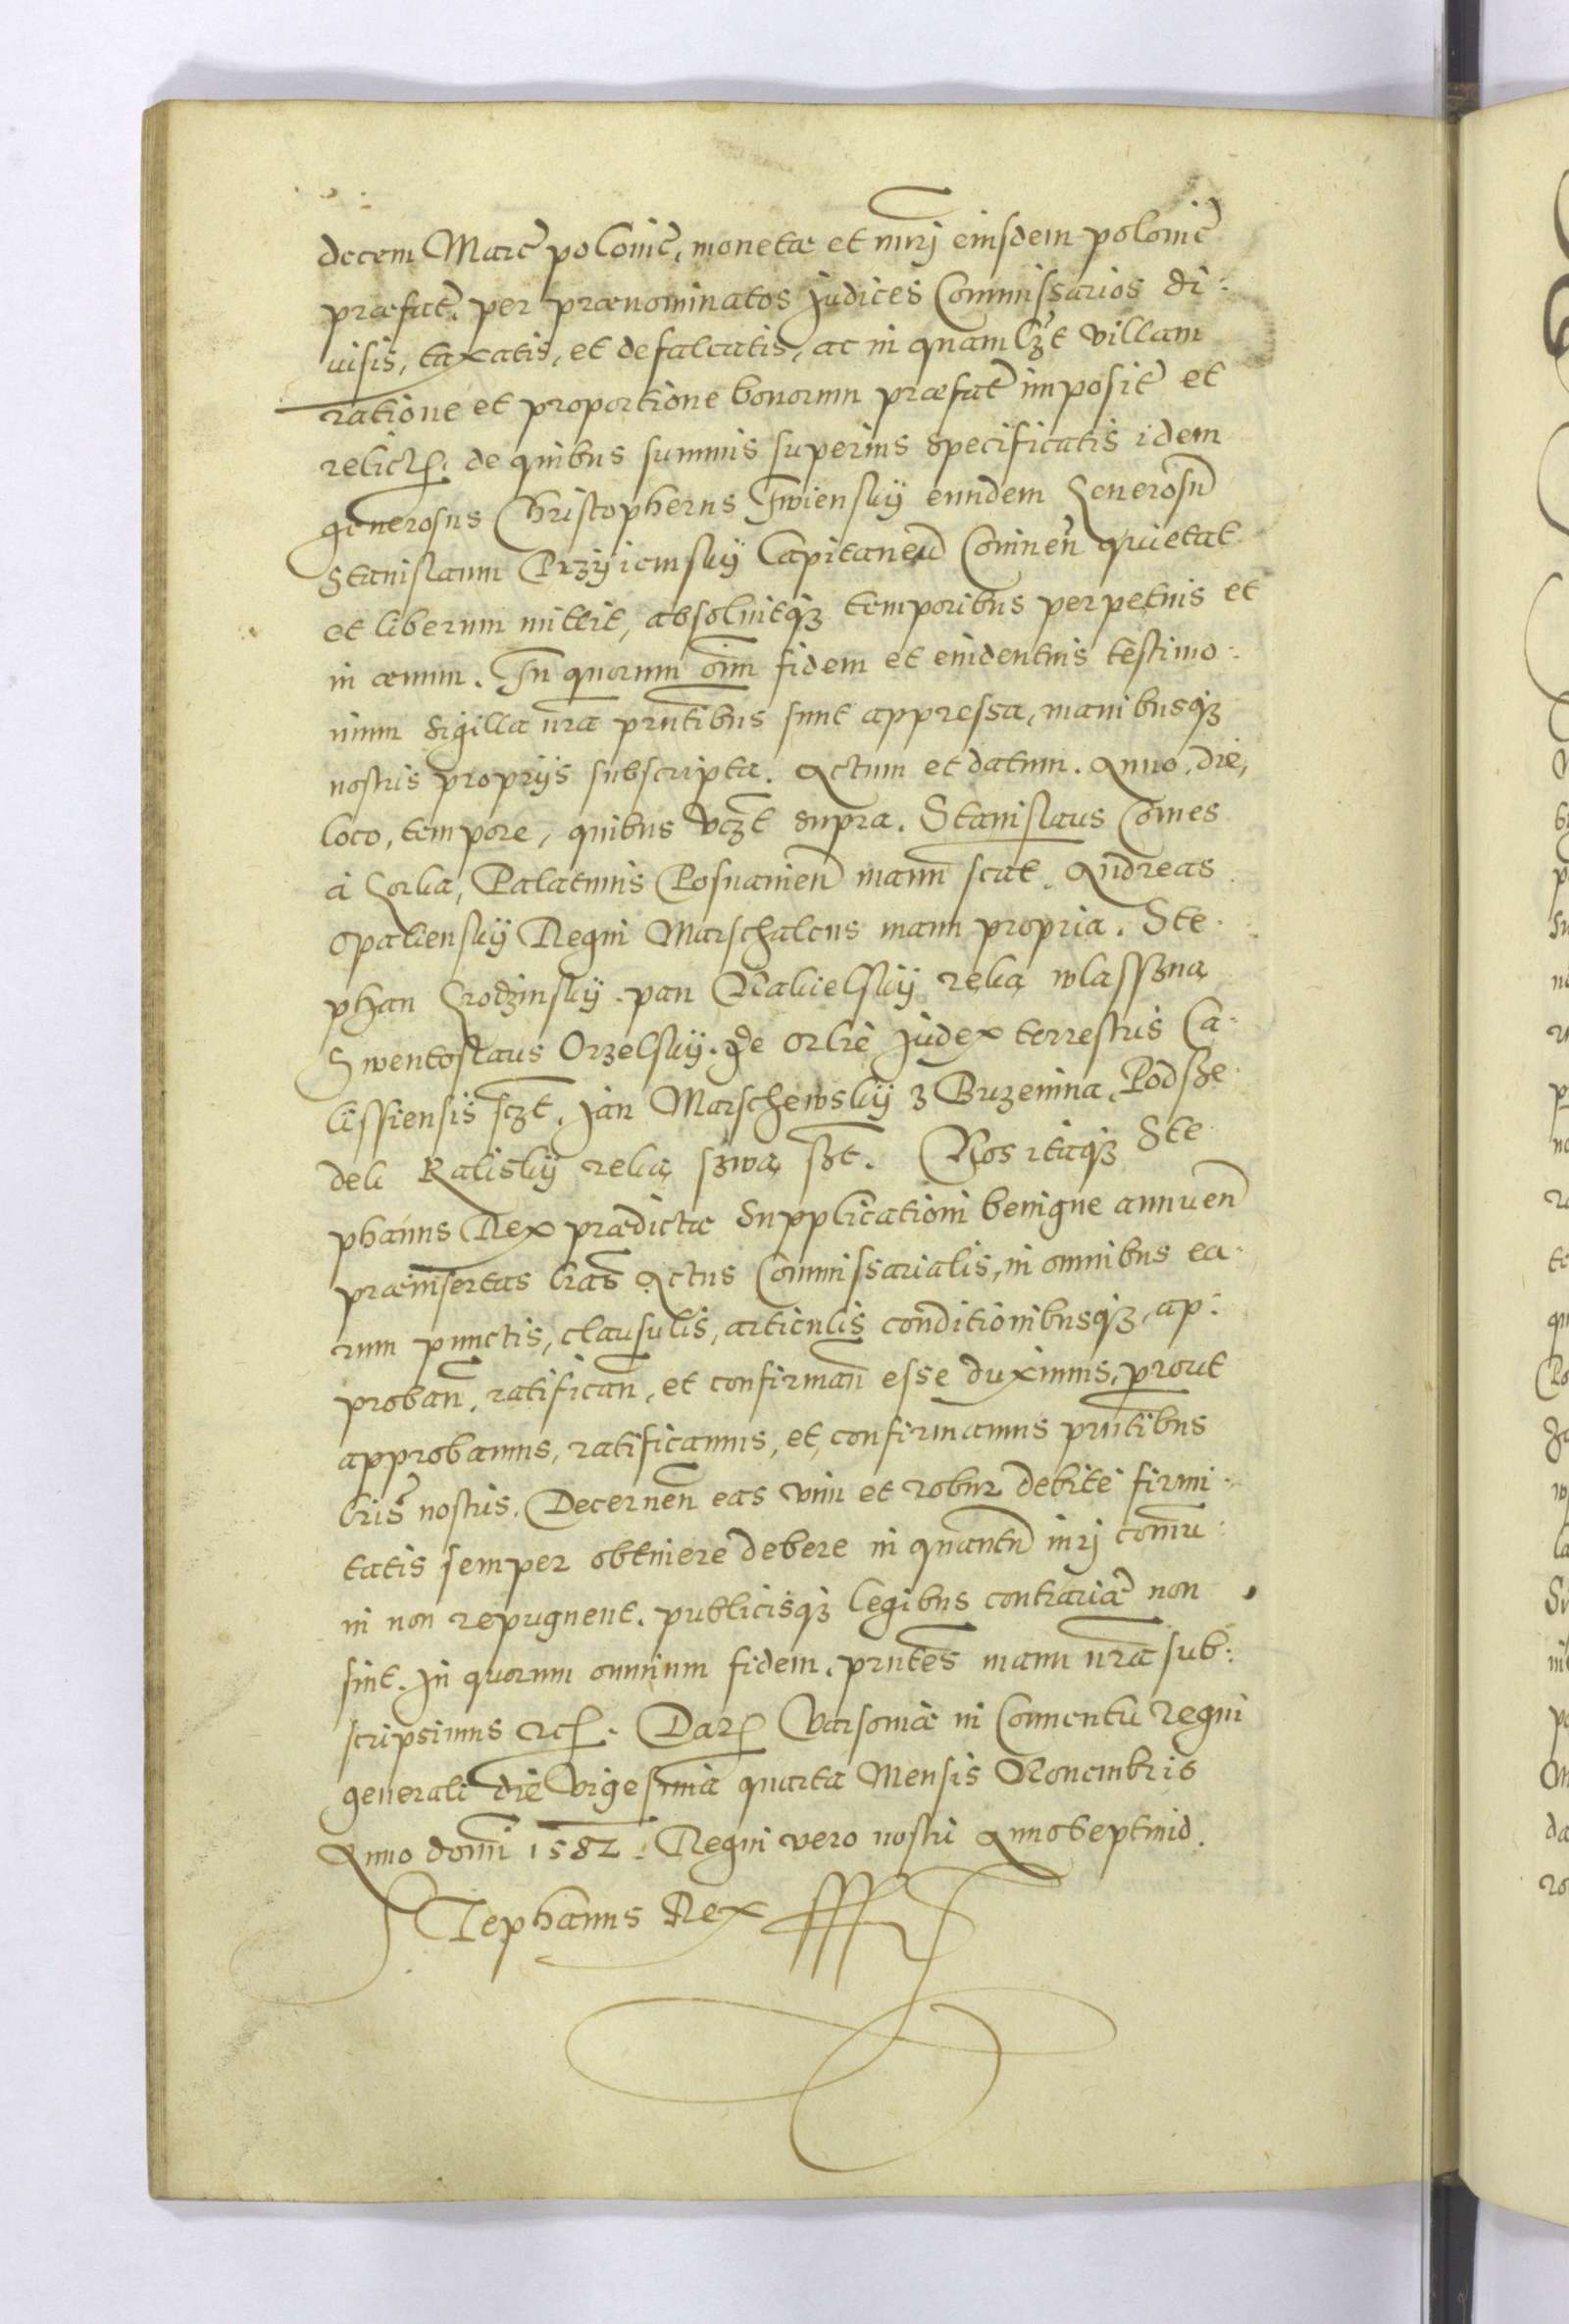 decem Marc̃ polonic̃, monetæ et nmri eiusdem polonic̃
præfat̃. per prænominatos Judices Commissarios di-
uisis, taxatis, et defalcatis, ac in quamlȝt villam
ratione et proportione bonorum præfat̃ imposit̃ et
relict̃. de quibus summis superius specificatis idem
generosus Christopherus Iwiensky eundem Generosū
Stanislaum Przyiemsky Capitaneū Coninen̄ quietat
et liberum mittit, absoluitqȝ temporibus perpetuis et
in æuum. In quorum oīm fidem et euidentius testimo-
nium sigilla nr̄a pn̄tibus sunt appressa, manibusqȝ
nostris proprijs subscripta. Actum et datum. Anno, die,
loco, tempore, quibus vtȝ supra. Stanislaus Comes
à Gorka, Palatinus Posnanien̄ manu scat. Andreas
Opaliensky Regni Marschalcus manu propria. Ste-
phan Grodzinsky. pan Nakielsky ręką wlassną
Swentoslaus Orzelsky. de Orlie Judex terrestris Ca-
lissiensis sȝt. Jan Marschewsky z Buzenina, Podsze-
dek Kalisky ręką swą sȝt. Nos itaqȝ Ste-
phanus Rex prædictæ supplicationi benigne annuen̄
præinsertas lr̄as Actus Commissarialis, in omnibus ea-
rum punctis, clausulis, articulis conditionibusqȝ, ap-
proban̄, ratifican̄, et confirman̄ esse duximus, prout
approbamus, ratificamus, et confirmamus pn̄tibus
lr̄is nostris. Decernen̄ eas vim et robur debitè firmi-
tatis semper obtinere debere in quantū iuri comu-
ni non repugnent. publicisqȝ legibus contrariæ non
sint. In quorum omnium fidem. pn̄tes manu nr̄a sub-
scripsimus etc. Dat̃ Varsouiæ in Conuentu regni
generali die vigesima quarta Mensis Nouembris
Anno domī 1582. Regni vero nostri Anno septimo.
Stephanus Rex